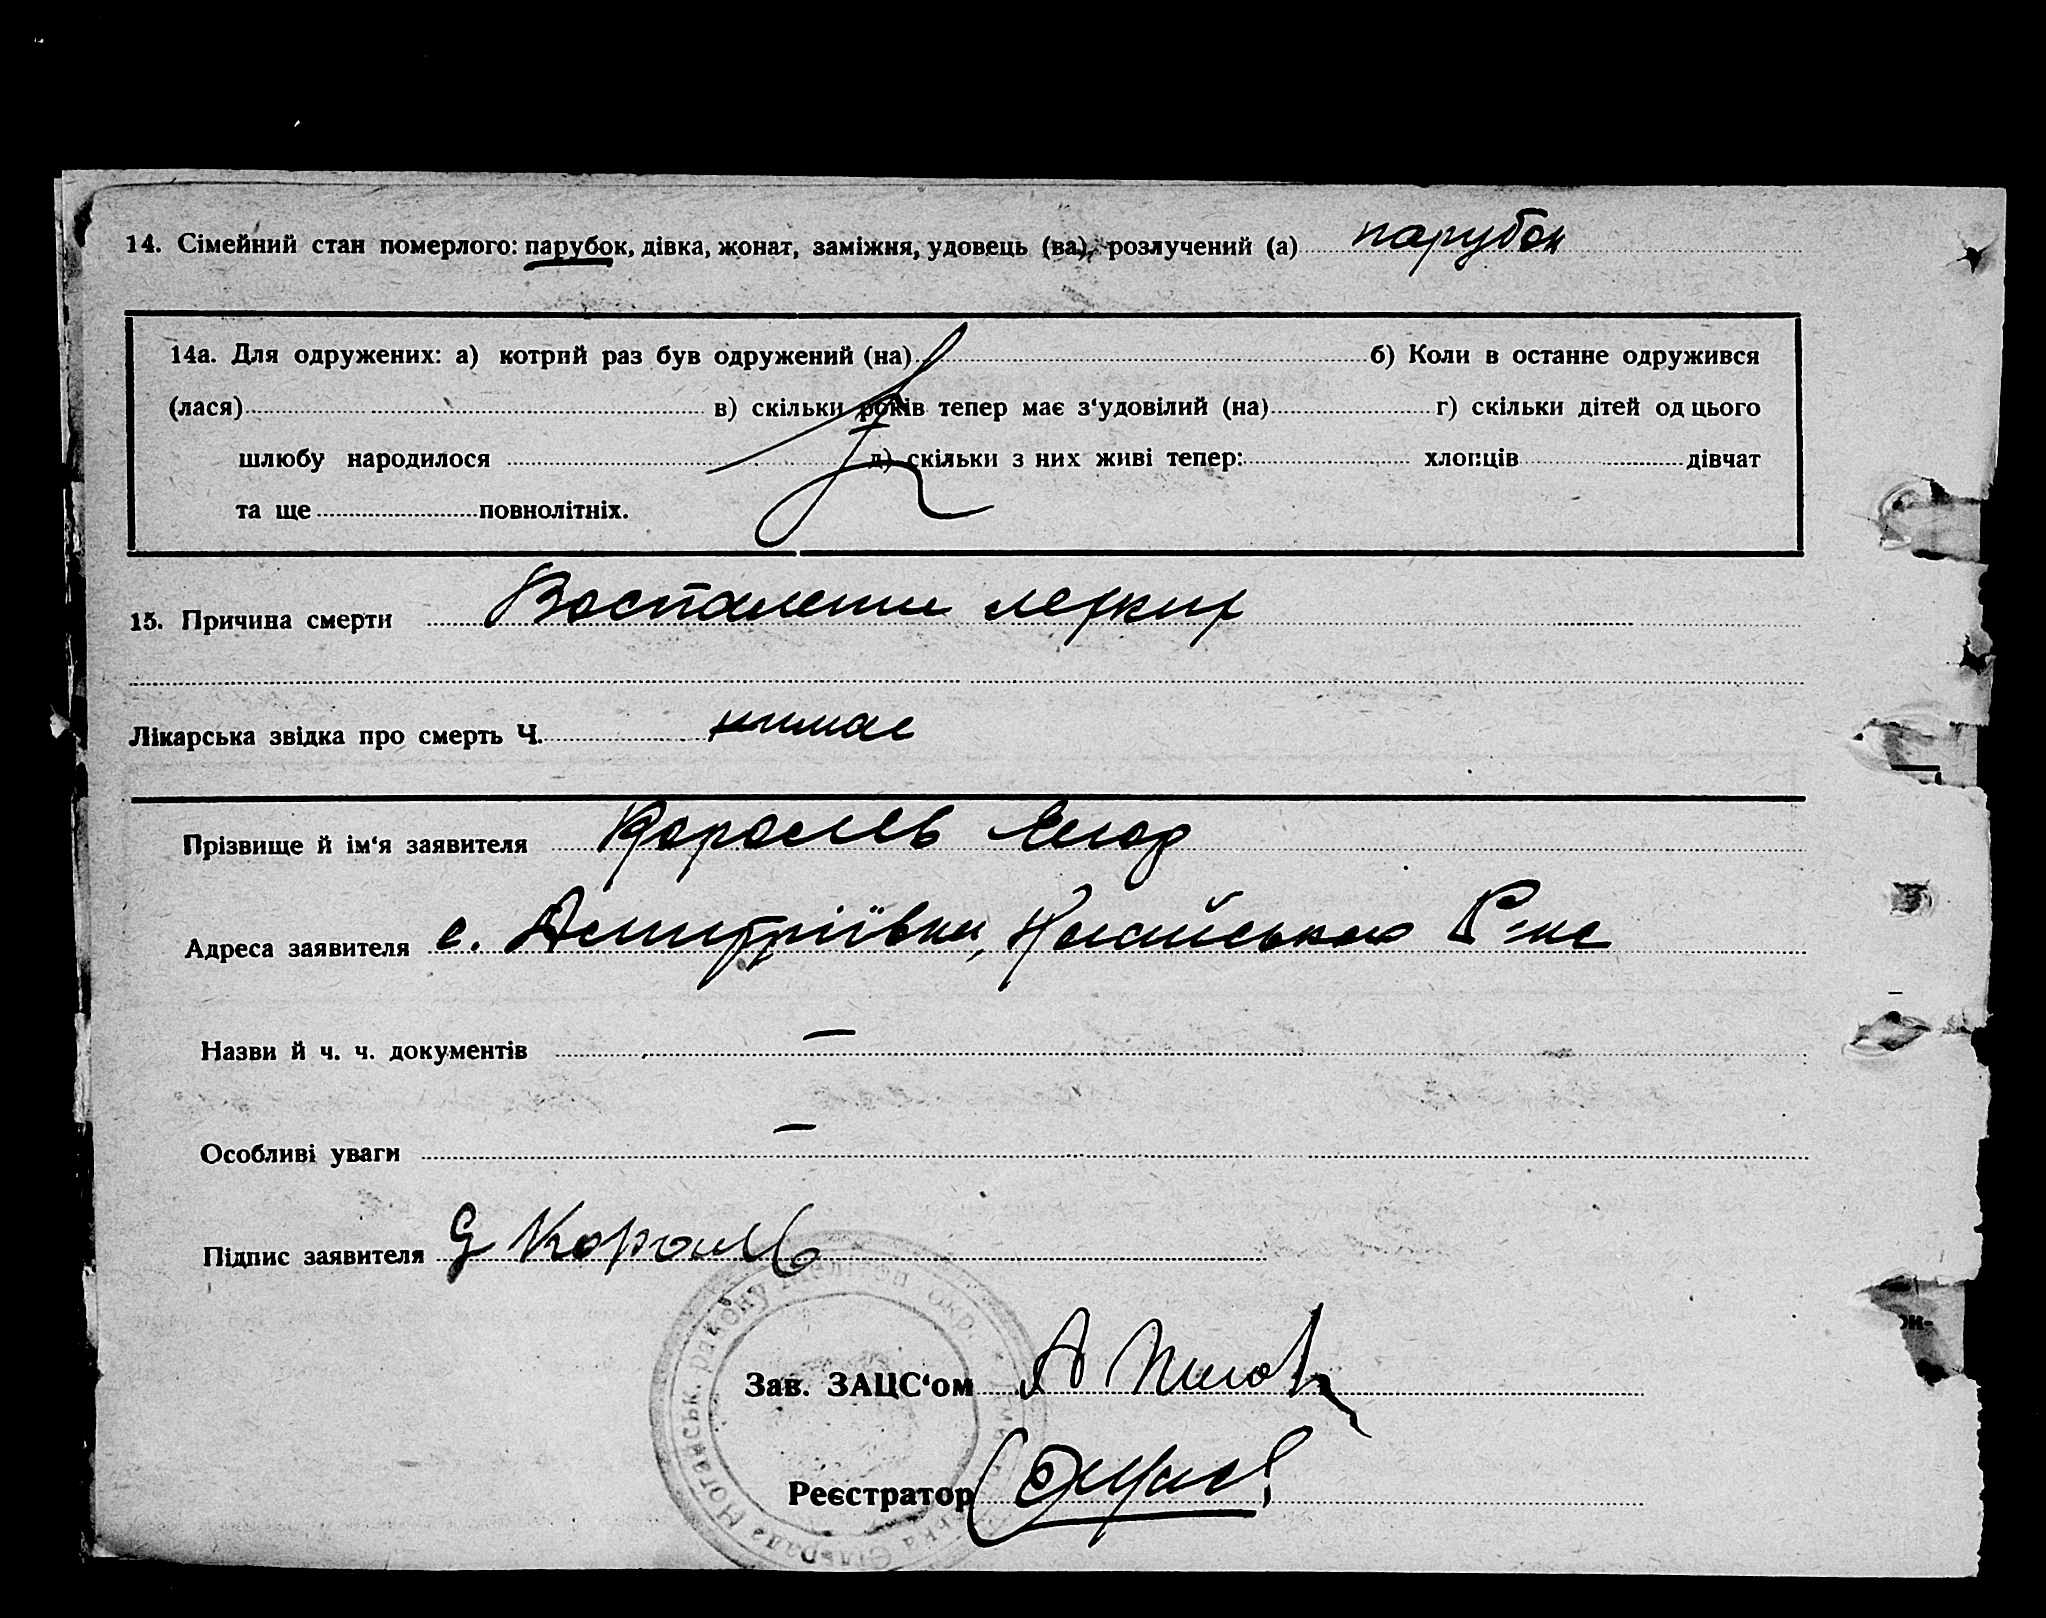 14. Сімейний стан померлого: парубок, дівка, жонат, заміжня, удовець (ва), розлучений (а) парубок
14а. Для одружених: а) котрий раз був одружений (на) б) Коли в останне одружився
(лася) в) скільки років тепер має з‘удовілий (на) г) скільки дітей од цього
шлюбу народилося д) скільки з них живі тепер: хлопців дівчат
та ще повнолітніх.
15. Причина смерти Воспаление легких
Лікарська звідка про смерть Ч. нимає
Прізвище й ім‘я заявителя Король
Адреса заявителя с. Дмитріївки, Ногайського Р-на
Назви й ч. ч. документів —
Особливі уваги —
Підпис заявителя Король
Зав. ЗАЦС‘ом
Реєстратор
Сільрада Ногайськ. району Мелітоп. окр.